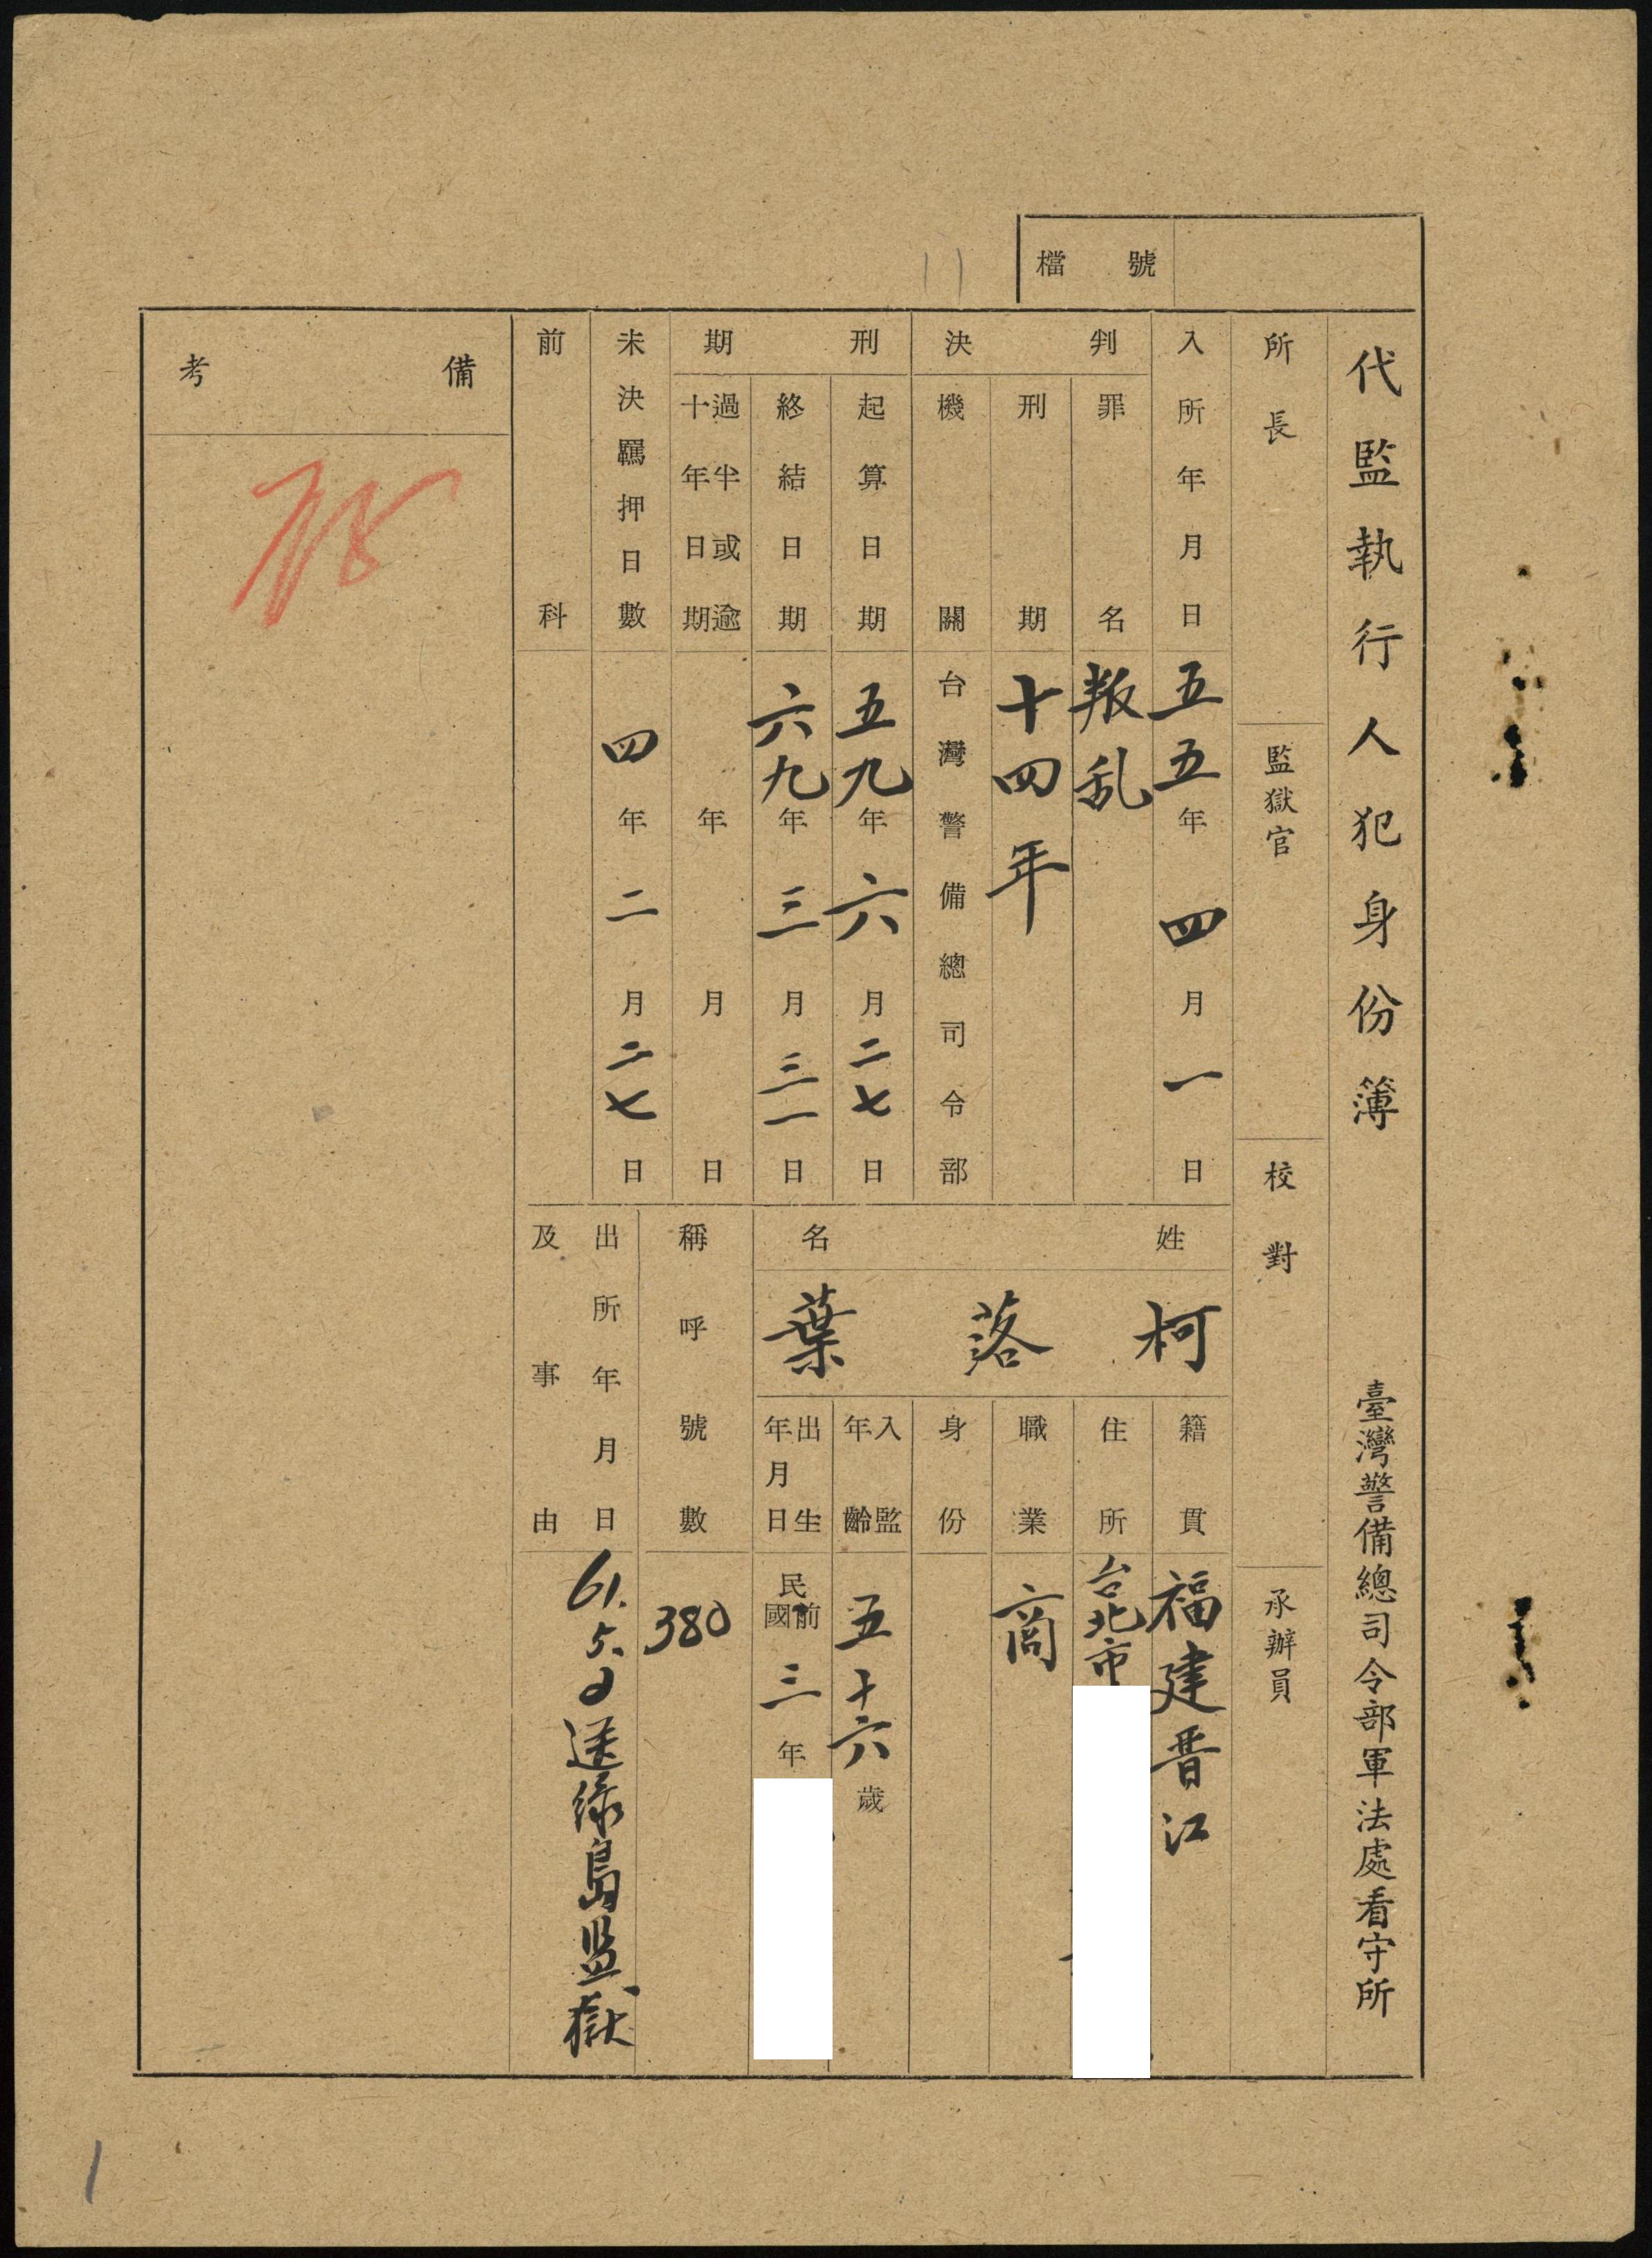 檔號
代監執行人犯身份簿 臺灣警備總司令部軍法處看守所
所長
監獄官
校對
承辦員
入所年月日 五五年四月一日
判決
罪名 叛乱
刑期 十四年
機關 台灣警備總司令部
刑期
起算日期 五九年六月二七日
終結日期 六九年三月三一日
過半或逾十年日期 年月日
未決羈押日數 四年二月二七日
前科
姓名 柯落葉
籍貫 福建晋江
住所 台北市
職業 商
身份
入監年齡 五十六歲
出生年月日 民國前三年
稱呼號數 380
出所年月日及事由 61.5.2送綠島监獄
備考
1